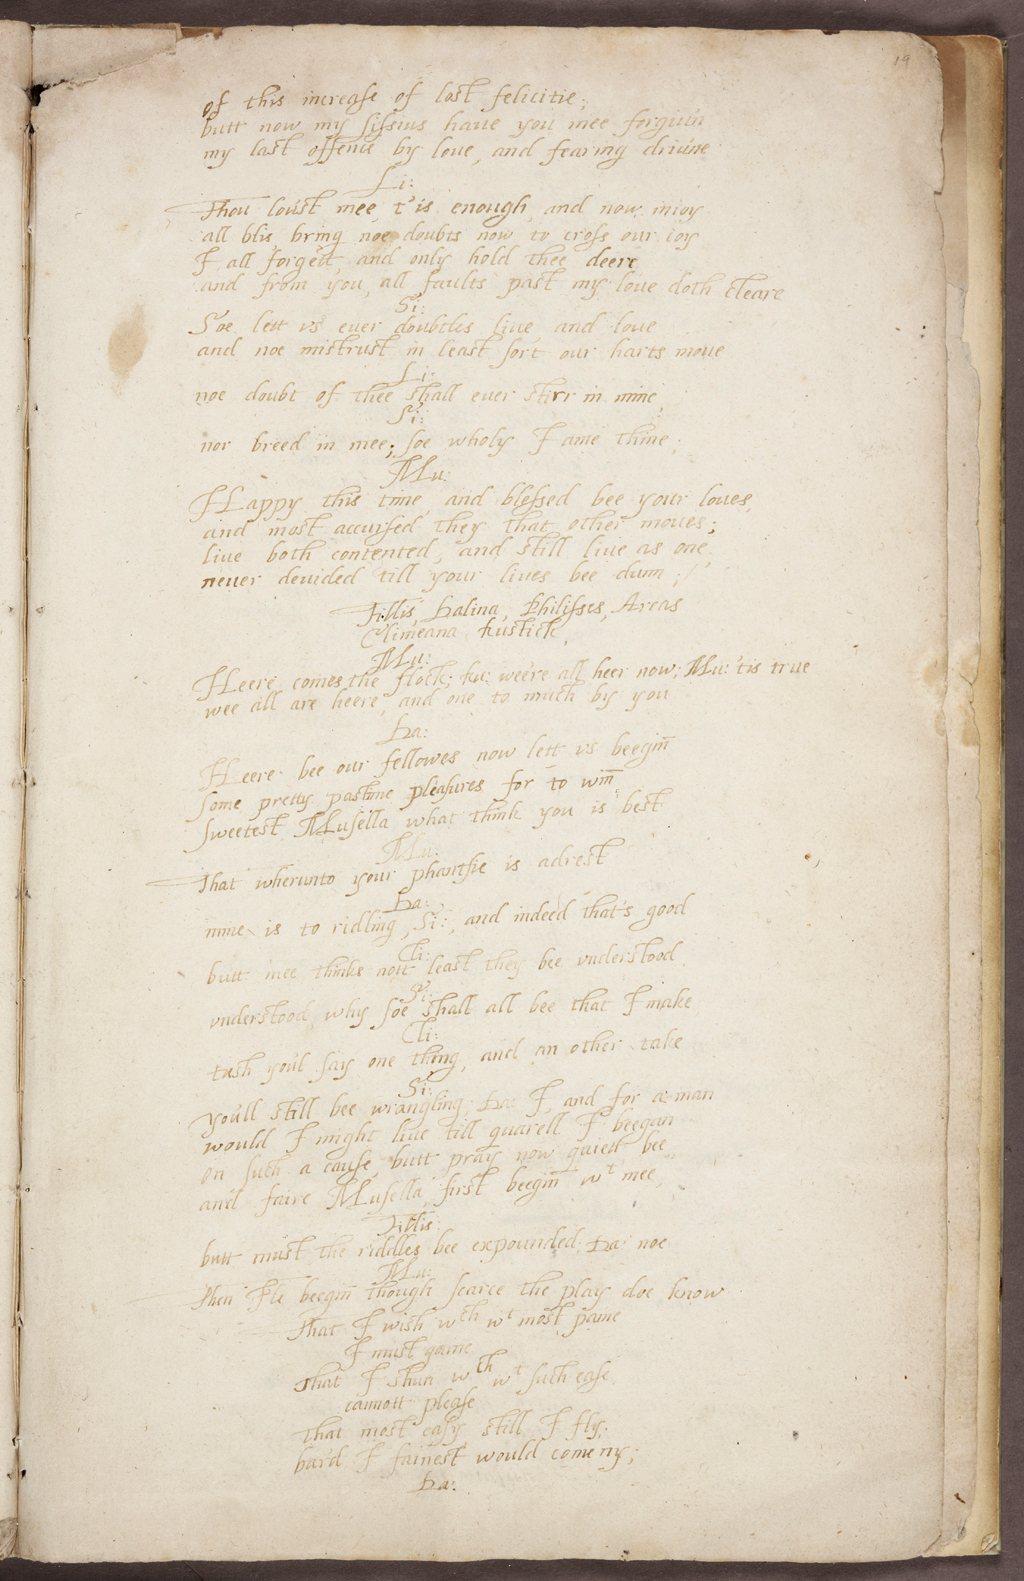 19
of this increase of lost felicitie;
butt now my Lissius haue you mee forgiu'n
my last offence by loue, and fearing driune
Li:
Thou lou'st mee t'is enough, and now inioy
all blis, bring noe doubts now to cross our ioy
I all forgett, and only hold thee deere
and from you, all faults past my loue doth cleare
Si:
Soe lett vs euer doubtles liue and loue
and noe mistrust in least sort our harts moue
Li:
noe doubt of thee shall euer stirr in mine,
Si:
nor breed in mee; soe wholy I ame thine;
Mu:
Happy this time, and blessed bee your loues,
and most accursed they that other moues;
liue both contented, and still liue as one
neuer deuided till your liues bee dunn;
Fillis, Dalina, Phillisses, Arcas
Climeana Rustick,
Mu:
Heere comes the flock; Ru: wee're all heer now; Mu: 'tis true
wee all are heere, and one to much by you
Da:
Heere bee our fellowes now lett vs beeginn
some pretty pastime pleasures for to winn,
sweetest Musella what think you is best
Mu:
That wherunto your phantsie is adrest
Da:
mine is to ridling, Si:, and indeed that's good
Cli:
butt mee thinks nott least they bee vnderstood
Si:
vnderstood, why soe shall all bee that I make
Cli:
tush you'l say one thing, and an other take
Si:
you'll still bee wrangling; Da: I, and for a man
would I might liue till quarell I beegan
on such a cause, butt pray now quiett bee
and faire Musella first beeginn wt mee,
Fillis:
butt must the riddles bee expounded; Da: noe
Mu:
Then I'le beeginn though scarce the play doe know
That I wish wch wt most paine
I must gaine
That I shun wch wt such ease
cannott please
that most easy still I fly;
bar'd I fainest would come ny;
Da: